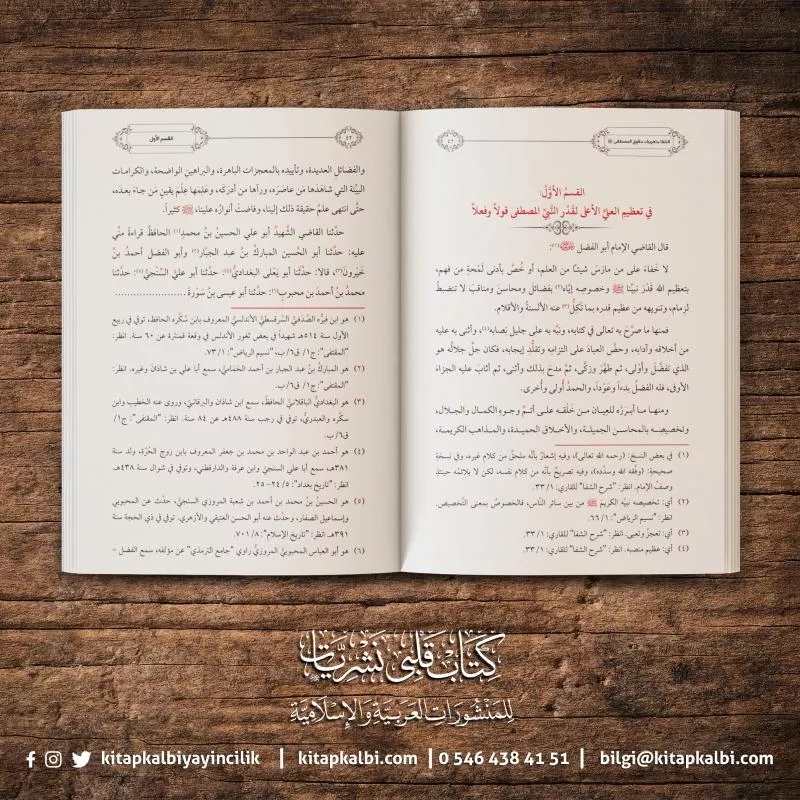 الشفا بتعريف حقوق المصطفى ﷺ
٤٦
القسمُ الأوَّلُ
في تعظيم العليِّ الأعلى لقَدْرِ النَّبيِّ المصطفى قولاً وفعلاً
قال القاضي الإمام أبو الفضل ﵁(١):
لا خَفاءَ على من مارَسَ شيئًا من العلم، أو خُصَّ بأدنى لَمْحةٍ من فهم،
بتعظيم الله قَدْرَ نبيِّنا ﷺ وخصوصِه إيَّاه(٢) بفضائلَ ومحاسنَ ومناقبَ لا تنضبطُ
لزِمام، وتنويهِه من عظيم قدرِه بما تَكِلُّ(٣) عنه الألسنةُ والأقلام.
فمنها ما صرَّح به تعالى في كتابه، ونبَّه به على جليل نصابه(٤)، وأثنى به عليه
من أخلاقه وآدابه، وحضَّ العبادَ على التزامِه وتقلُّدِ إيجابِه، فكان جلَّ جلالُه هو
الذي تفضَّلَ وأَوْلى، ثم طهَّرَ وزكَّى، ثمَّ مدحَ بذلك وأثنى، ثم أثابَ عليه الجزاءَ
الأوفى، فله الفضلُ بدءاً وعَوْداً، والحمدُ أُولى وأُخرى.
ومنها ما أبرَزَه للعِيان من خَلْقه على أتمِّ وجوهِ الكمال والجلال،
وتخصيصِه بالمحاسن الجميلة، والأخلاق الحميدة، والمذاهب الكريمة،
(١) في بعض النسخ: (رحمه الله تعالى)، وفيه إشعارٌ بأنَّه ملحقٌ من كلام غيره، وفي نسخةٍ
صحيحةٍ: (وفَّقه الله وسدَّده)، وفيه تصريحٌ بأنَّه من كلام نفسه، لكن لا يلائمه حينئذٍ
وصفُ الإمام. انظر: "شرح الشفا" للقاري: ١/ ٣٣.
(٢) أي: تخصيصه نبيَّه الكريم ﷺ من بين سائر النَّاس، فالخصوصُ بمعنى التَّخصيص.
انظر: "نسيم الرياض": ١/ ٦٦.
(٣) أي: تعجزُ وتعيى. انظر: "شرح الشفا" للقاري: ١/ ٣٣.
(٤) أي: عظيم منصبه. انظر: "شرح الشفا" للقاري: ١/ ٣٣.
القسم الأول
٤٦
والفضائلِ العديدة، وتأييدِه بالمعجزات الباهرة، والبراهين الواضحة، والكرامات
البيِّنة التي شاهَدَها مَن عاصَرَه، ورآها من أدرَكَه، وعلِمَها عِلْمَ يقينٍ مَن جاءَ بعدَه،
حتَّى انتهى علمُ حقيقة ذلك إلينا، وفاضتْ أنوارُه علينا، ﷺ كثيراً.
حدَّثنا القاضي الشَّهيدُ أبو علي الحسينُ بنُ محمدٍ(١) الحافظُ قراءةً منِّي
عليه: حدَّثنا أبو الحُسينِ المباركُ بنُ عبد الجبَّار(٢) وأبو الفضل أحمدُ بنُ
خَيْرونَ(٣)، قالا: حدَّثنا أبو يَعْلى البغداديُّ(٤): حدَّثنا أبو عليٍّ السِّنْجيُّ(٥): حدَّثنا
محمدُ بنُ أحمدَ بن محبوبٍ(٦): حدَّثنا أبو عيسى بنُ سَوْرةَ
(١) هو ابن فِيرُّه الصَّدَفيُّ السَّرقسطيُّ الأندلسيُّ المعروف بابن سُكَّره الحافظ، توفي في ربيع
الأول سنة ٥١٤هـ شهيداً في بعض ثغور الأندلس في وقعة قتندة عن ٦٠ سنة. انظر:
"المقتفى": ج١/ ق٦/ ب، "نسيم الرياض": ١/ ٧٣.
(٢) هو المباركُ بنُ عبد الجبار بن أحمد الحَمَاميُّ، سمع أبا علي بن شاذان وغيره. انظر:
"المقتفى": ج١/ ق٦/ب.
(٣) هو البغداديُّ الباقلانيُّ الحافظ، سمع ابن شاذان والبرقانيَّ، وروى عنه الخطيب وابن
سكَّره والعبدريُّ، توفي في رجب سنة ٤٨٨هـ عن ٨٤ سنة. انظر: "المقتفى": ج١/
ق٦/ ب.
(٤) هو أحمد بن عبد الواحد بن محمد بن جعفر المعروف بابن زوج الحُرَّة، ولد سنة
٣٨١هـ، سمع أبا علي السنجيَّ وابن عرفة والدارقطني، وتوفي في شوال سنة ٤٣٨هـ.
انظر: "تاريخ بغداد": ٥/ ٢٤- ٢٥.
(٥) هو الحسينُ بنُ محمد بن أحمد بن شعبة المروزي السنجيُّ، حدَّث عن المحبوبي
وإسماعيل الصفار، وحدَّث عنه أبو الحسن العتيقي والأزهري. توفي في ذي الحجة سنة
٣٩١هـ. انظر: "تاريخ الإسلام": ٨/ ٧٠١.
(٦) هو أبو العباس المحبوبيُّ المروزيُّ راوي "جامع الترمذي" عن مؤلفه، سمع الفضل =
كتاب قلبي نشريات
للمنشورات العربية والإسلامية
kitapkalbiyayincilik | kitapkalbi.com | 0 546 438 41 51 | bilgi@kitapkalbi.com